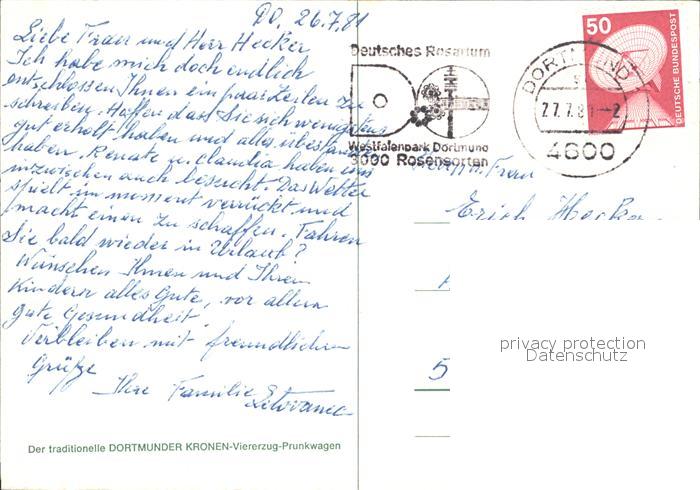 Do, 26.7.81
Liebe Frau und Herr Hecker
Ich habe mich doch endlich
entschlossen Ihnen ein paar Zeilen zu
schreiben. Hoffen das Sie sich wenigstens
gut erholt haben und alles
haben. Renate u. Claudia haben uns
inzwischen auch besucht. Das Wetter
spielt im moment verrückt und
macht einen zu schaffen. Fahren
Sie bald wieder in Urlaub?
Wünschen Ihnen und Ihren
Kindern alles Gute, vor allem
gute Gesundheit
Verbleiben mit freundlichen
Grüße
Ihre Familie
Der traditionelle DORTMUNDER KRONEN-Viererzug-Prunkwagen
Deutsches Rosarium
Westfalenpark Dortmund
3000 Rosensorten
DORTMUND
27.7.81-2
4600
50
DEUTSCHE BUNDESPOST
Frau
Erich Hecker
5
privacy protection
Datenschutz